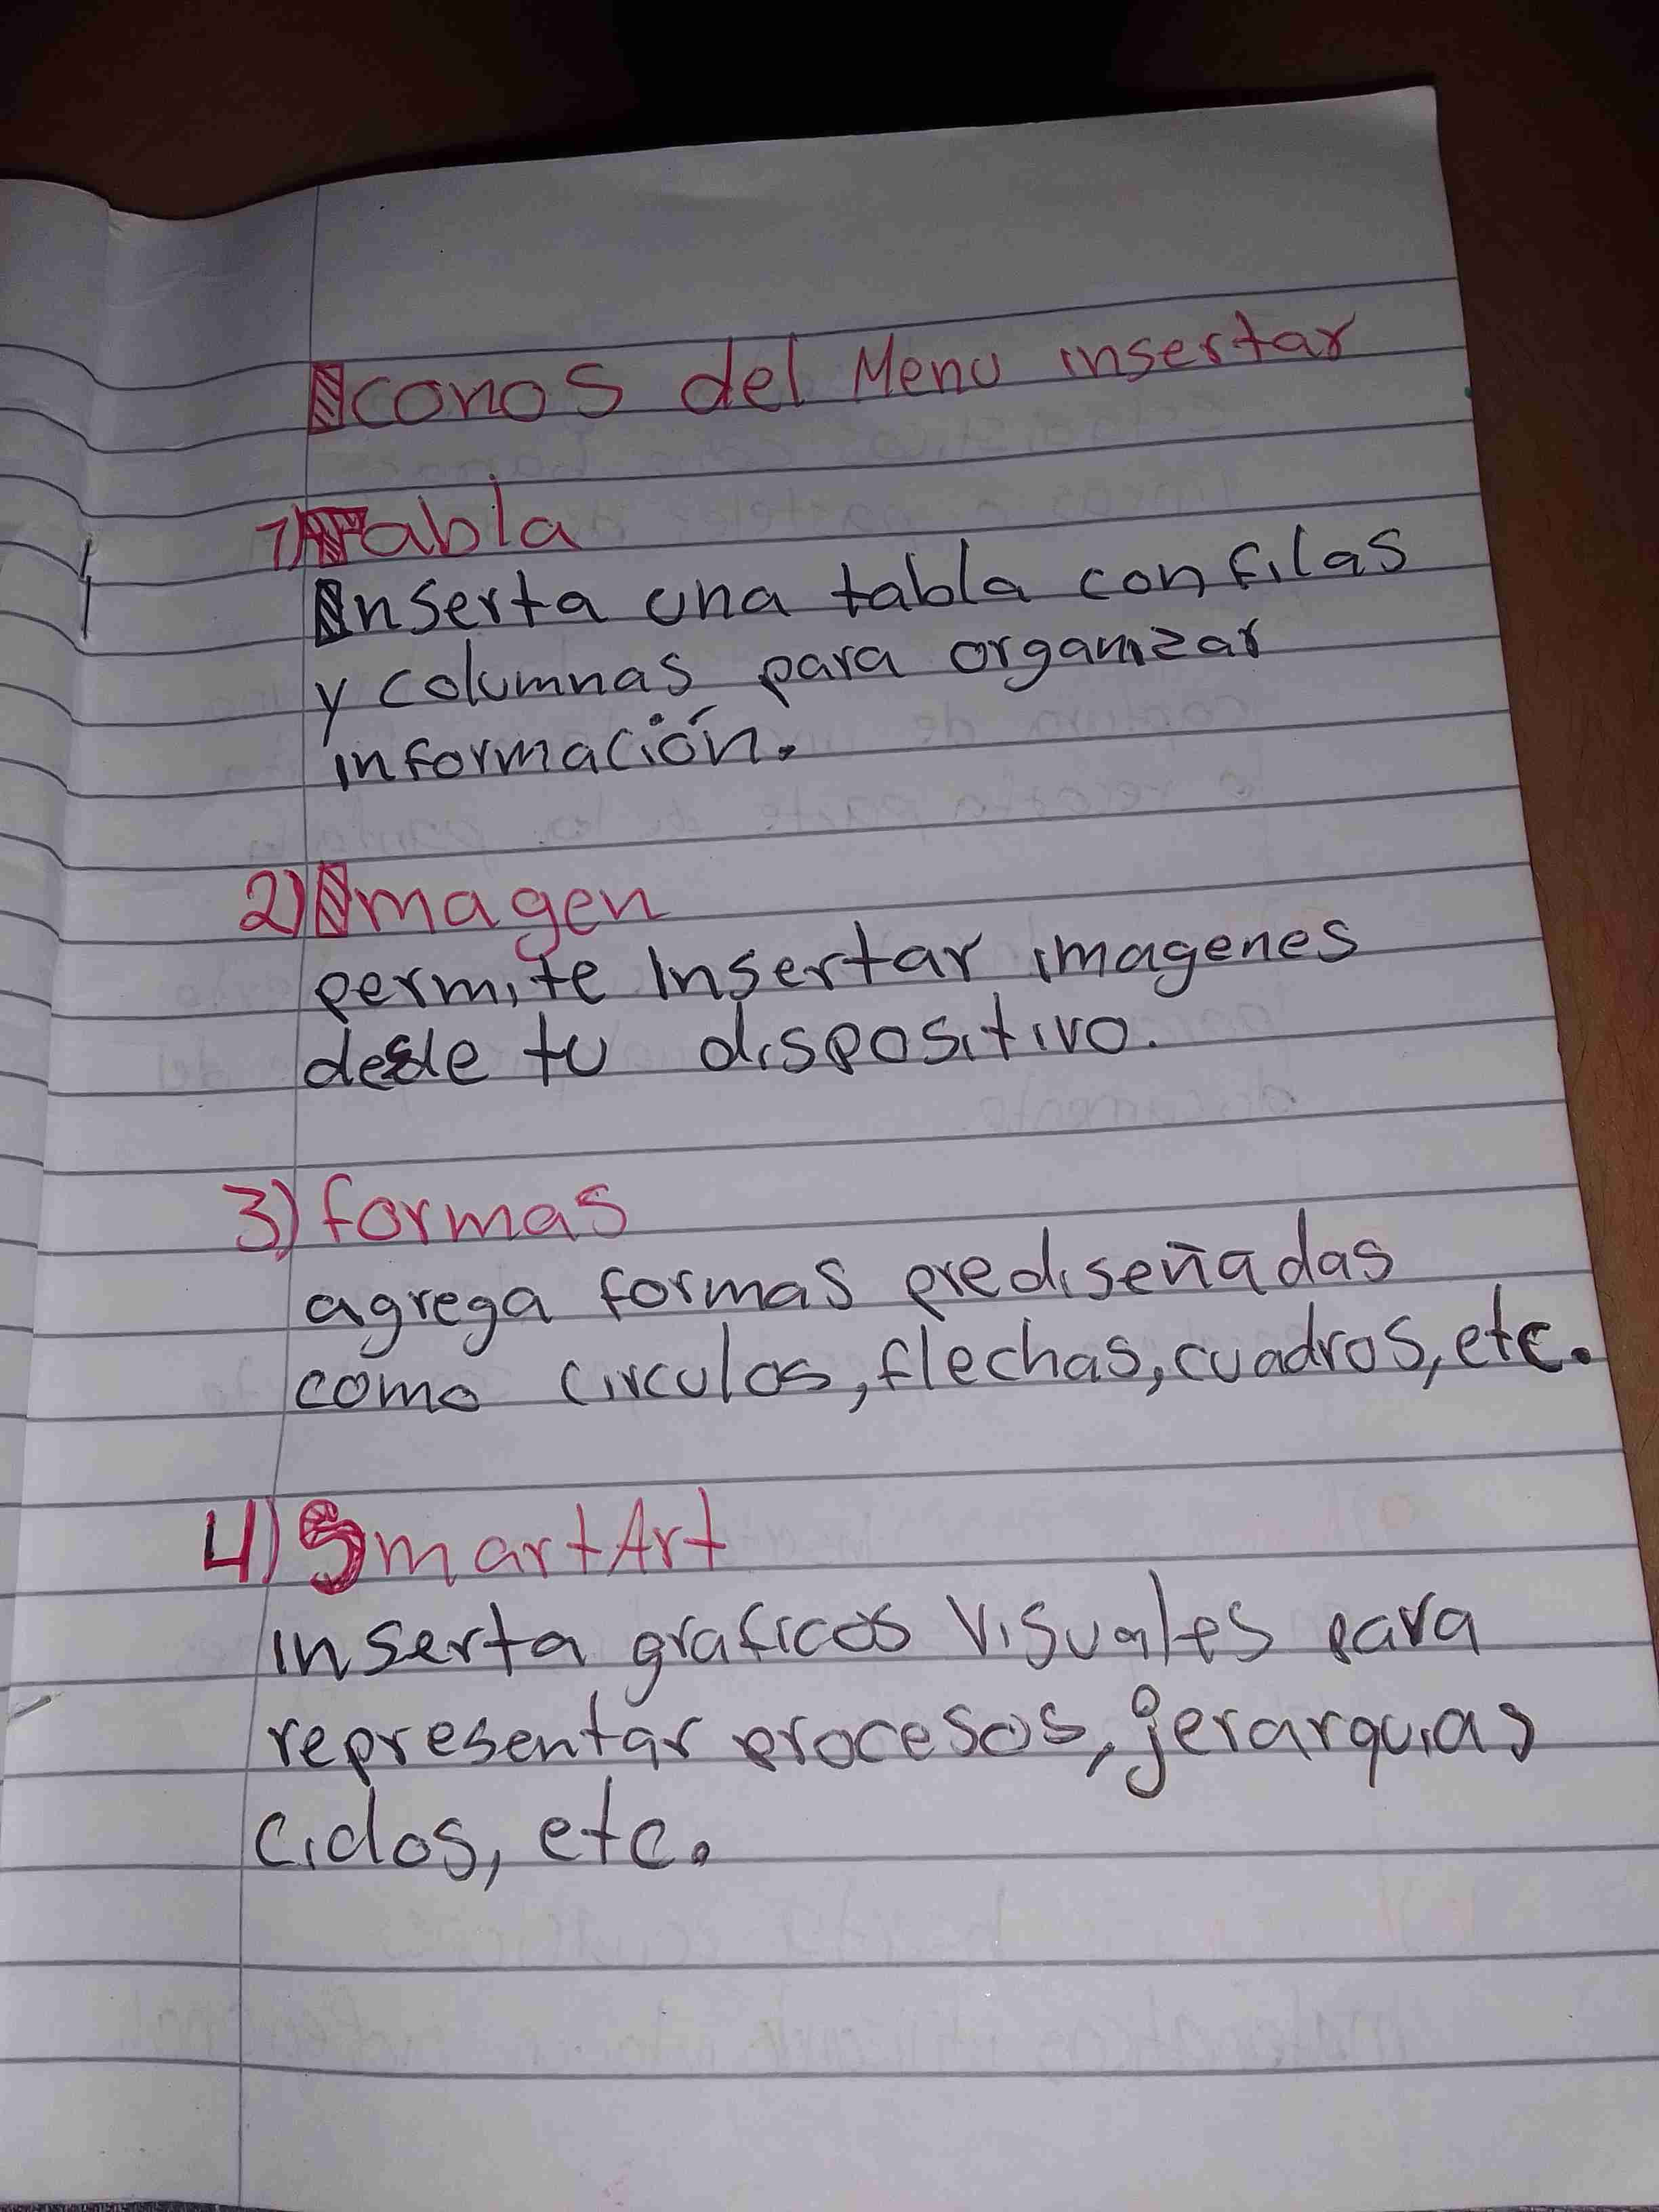 Iconos del Menu insertar
1) Tabla
Inserta una tabla con filas
y columnas para organizar
información.
2) Imagen
permite Insertar imagenes
desde tu dispositivo.
3) formas
agrega formas prediseñadas
como circulos, flechas, cuadros, etc.
4) SmartArt
inserta graficos visuales para
representar procesos, jerarquias
ciclos, etc.